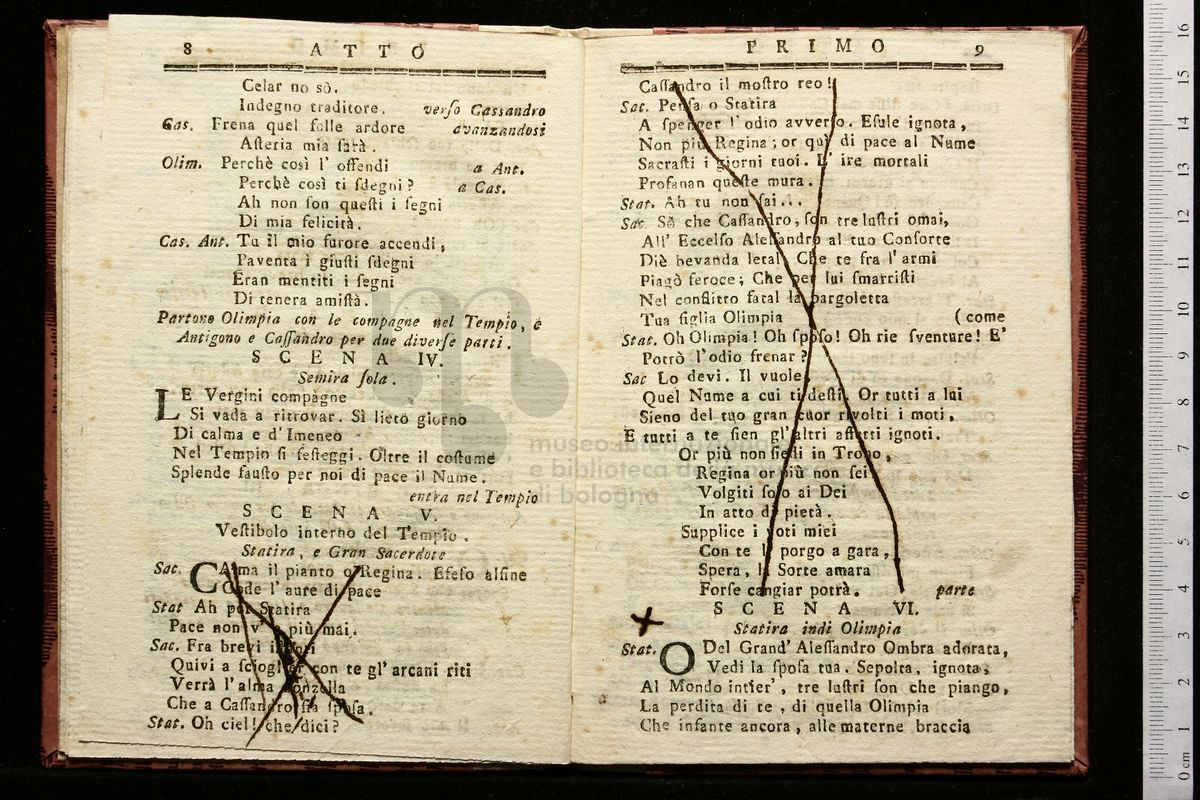 8 ATTO
Celar no sò.
Indegno traditore. verso Cassandro
Cas. Frena quel folle ardore avanzandosi
Asteria mia sarà.
Olim. Perchè così l' offendi a Ant.
Perchè così ti sdegni? a Cas.
Ah non son questi i segni
Di mia felicità.
Cas. Ant. Tu il mio furore accendi,
Paventa i giusti sdegni
Eran mentiti i segni
Di tenera amistà.
Partono Olimpia con le compagne nel Tempio, e
Antigono e Cassandro per due diverse parti.
SCENA IV.
Semira sola.
LE Vergini compagne
Si vada a ritrovar. Sì lieto giorno
Di calma e d'Imeneo
Nel Tempio si festeggi. Oltre il costume
Splende fausto per noi di pace il Nume.
entra nel Tempio
SCENA V.
Vestibolo interno del Tempio.
Statira, e Gran Sacerdote
Sac. CAlma il pianto o Regina. Efeso alfine
Gode l'aure di pace
Stat Ah per Statira
Pace non v' è più mai.
Sac. Fra brevi istori
Quivi a scioglier con te gl' arcani riti
Verrà l'alma donzella
Che a Cassandro fia sposa.
Stat. Oh ciel! che dici?
PRIMO 9
Cassandro il mostro reo!
Sac. Pensa o Statira
A spenger l'odio avverso. Esule ignota,
Non più Regina; or quì di pace al Nume
Sacrasti i giorni tuoi. L' ire mortali
Profanan queste mura.
Stat. Ah tu non sai...
Sac. Sò che Cassandro, son tre lustri omai,
All' Eccelso Alessandro al tuo Consorte
Diè bevanda letal. Che te fra l'armi
Piagò feroce; Che per lui smarristi
Nel conflitto fatal la pargoletta
Tua figlia Olimpia (come
Stat. Oh Olimpia! Oh sposo! Oh rie sventure! E'
Potrò l'odio frenar?
Sac Lo devi. Il vuole
Quel Nume a cui ti desti. Or tutti a lui
Sieno del tuo gran cuor rivolti i moti.
E tutti a te sien gl'altri affetti ignoti.
Or più non siedi in Trono,
Regina or più non sei
Volgiti solo ai Dei
In atto di pietà.
Supplice i voti miei
Con te li porgo a gara,
Spera, la Sorte amara
Forse cangiar potrà. parte
SCENA VI.
Statira indi Olimpia
Stat. O Del Grand' Alessandro Ombra adorata,
Vedi la sposa tua. Sepolta, ignota,
Al Mondo intier', tre lustri son che piango,
La perdita di te, di quella Olimpia
Che infante ancora, alle materne braccia
museo internazionale
e biblioteca della
di bologna